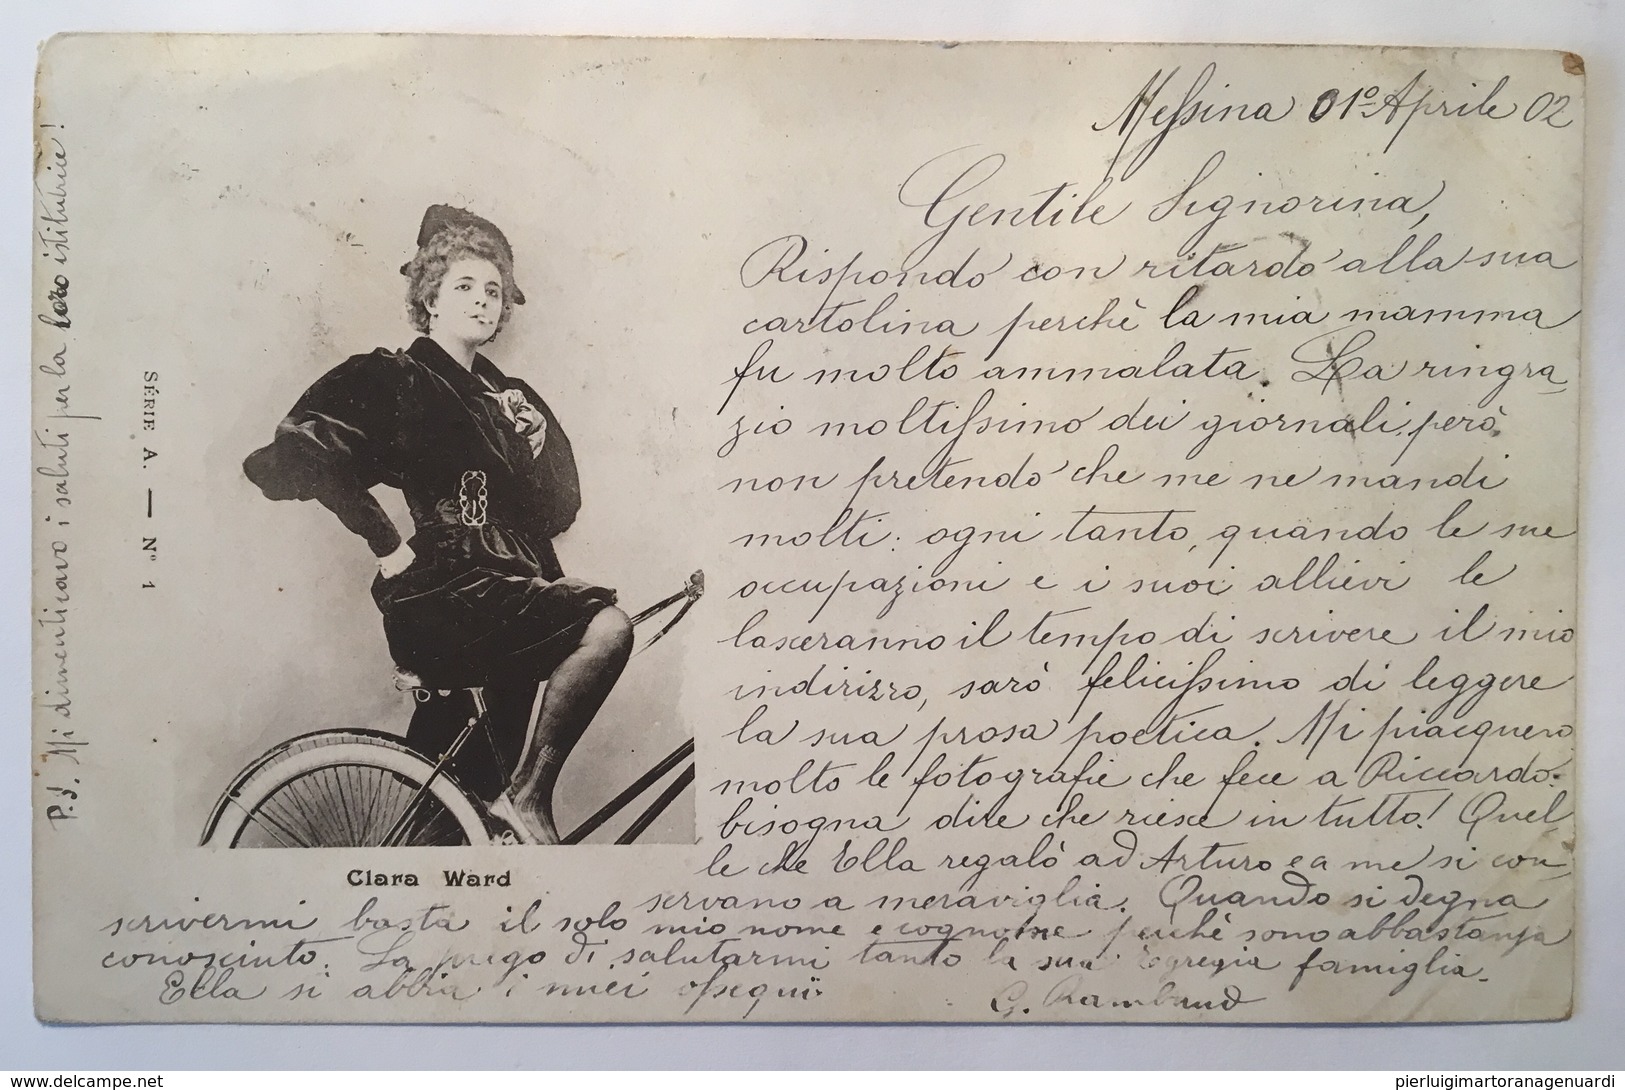 Messina 01º Aprile 02
Gentile Signorina,
Rispondo con ritardo alla sua
cartolina perchè la mia mamma
fu molto ammalata. La ringra-
zio moltissimo dei giornali, però
non pretendo che me ne mandi
molti: ogni tanto, quando le sue
occupazioni e i suoi allievi le
lasceranno il tempo di scrivere il mio
indirizzo, sarò felicissimo di leggere
la sua prosa poetica. Mi piacquero
molto le fotografie che fece a Riccardo.
bisogna dire che riesce in tutto! Quel-
le che Ella regalò ad Arturo e a me si con-
servano a meraviglia. Quando si degna
scrivermi basta il solo mio nome e cognome perchè sono abbastanza
conosciuto. La prego di salutarmi tanto la sua Egregia famiglia.
Ella si abbia i miei ossequii
G. Rambaud
P.S. Mi dimenticavo i saluti per la loro istitutrice!
SÉRIE A. — Nº 1
Clara Ward
www.delcampe.net
pierluigimartoranagenuardi